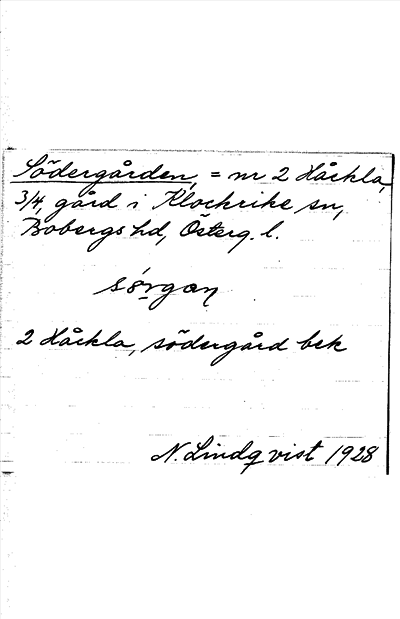 Södergården, = nr 2 Håckla,
3/4, gård i Klockrike sn,
Bobergs hd, Österg. l.
2 Håckla, södergård bek
N. Lindqvist 1928